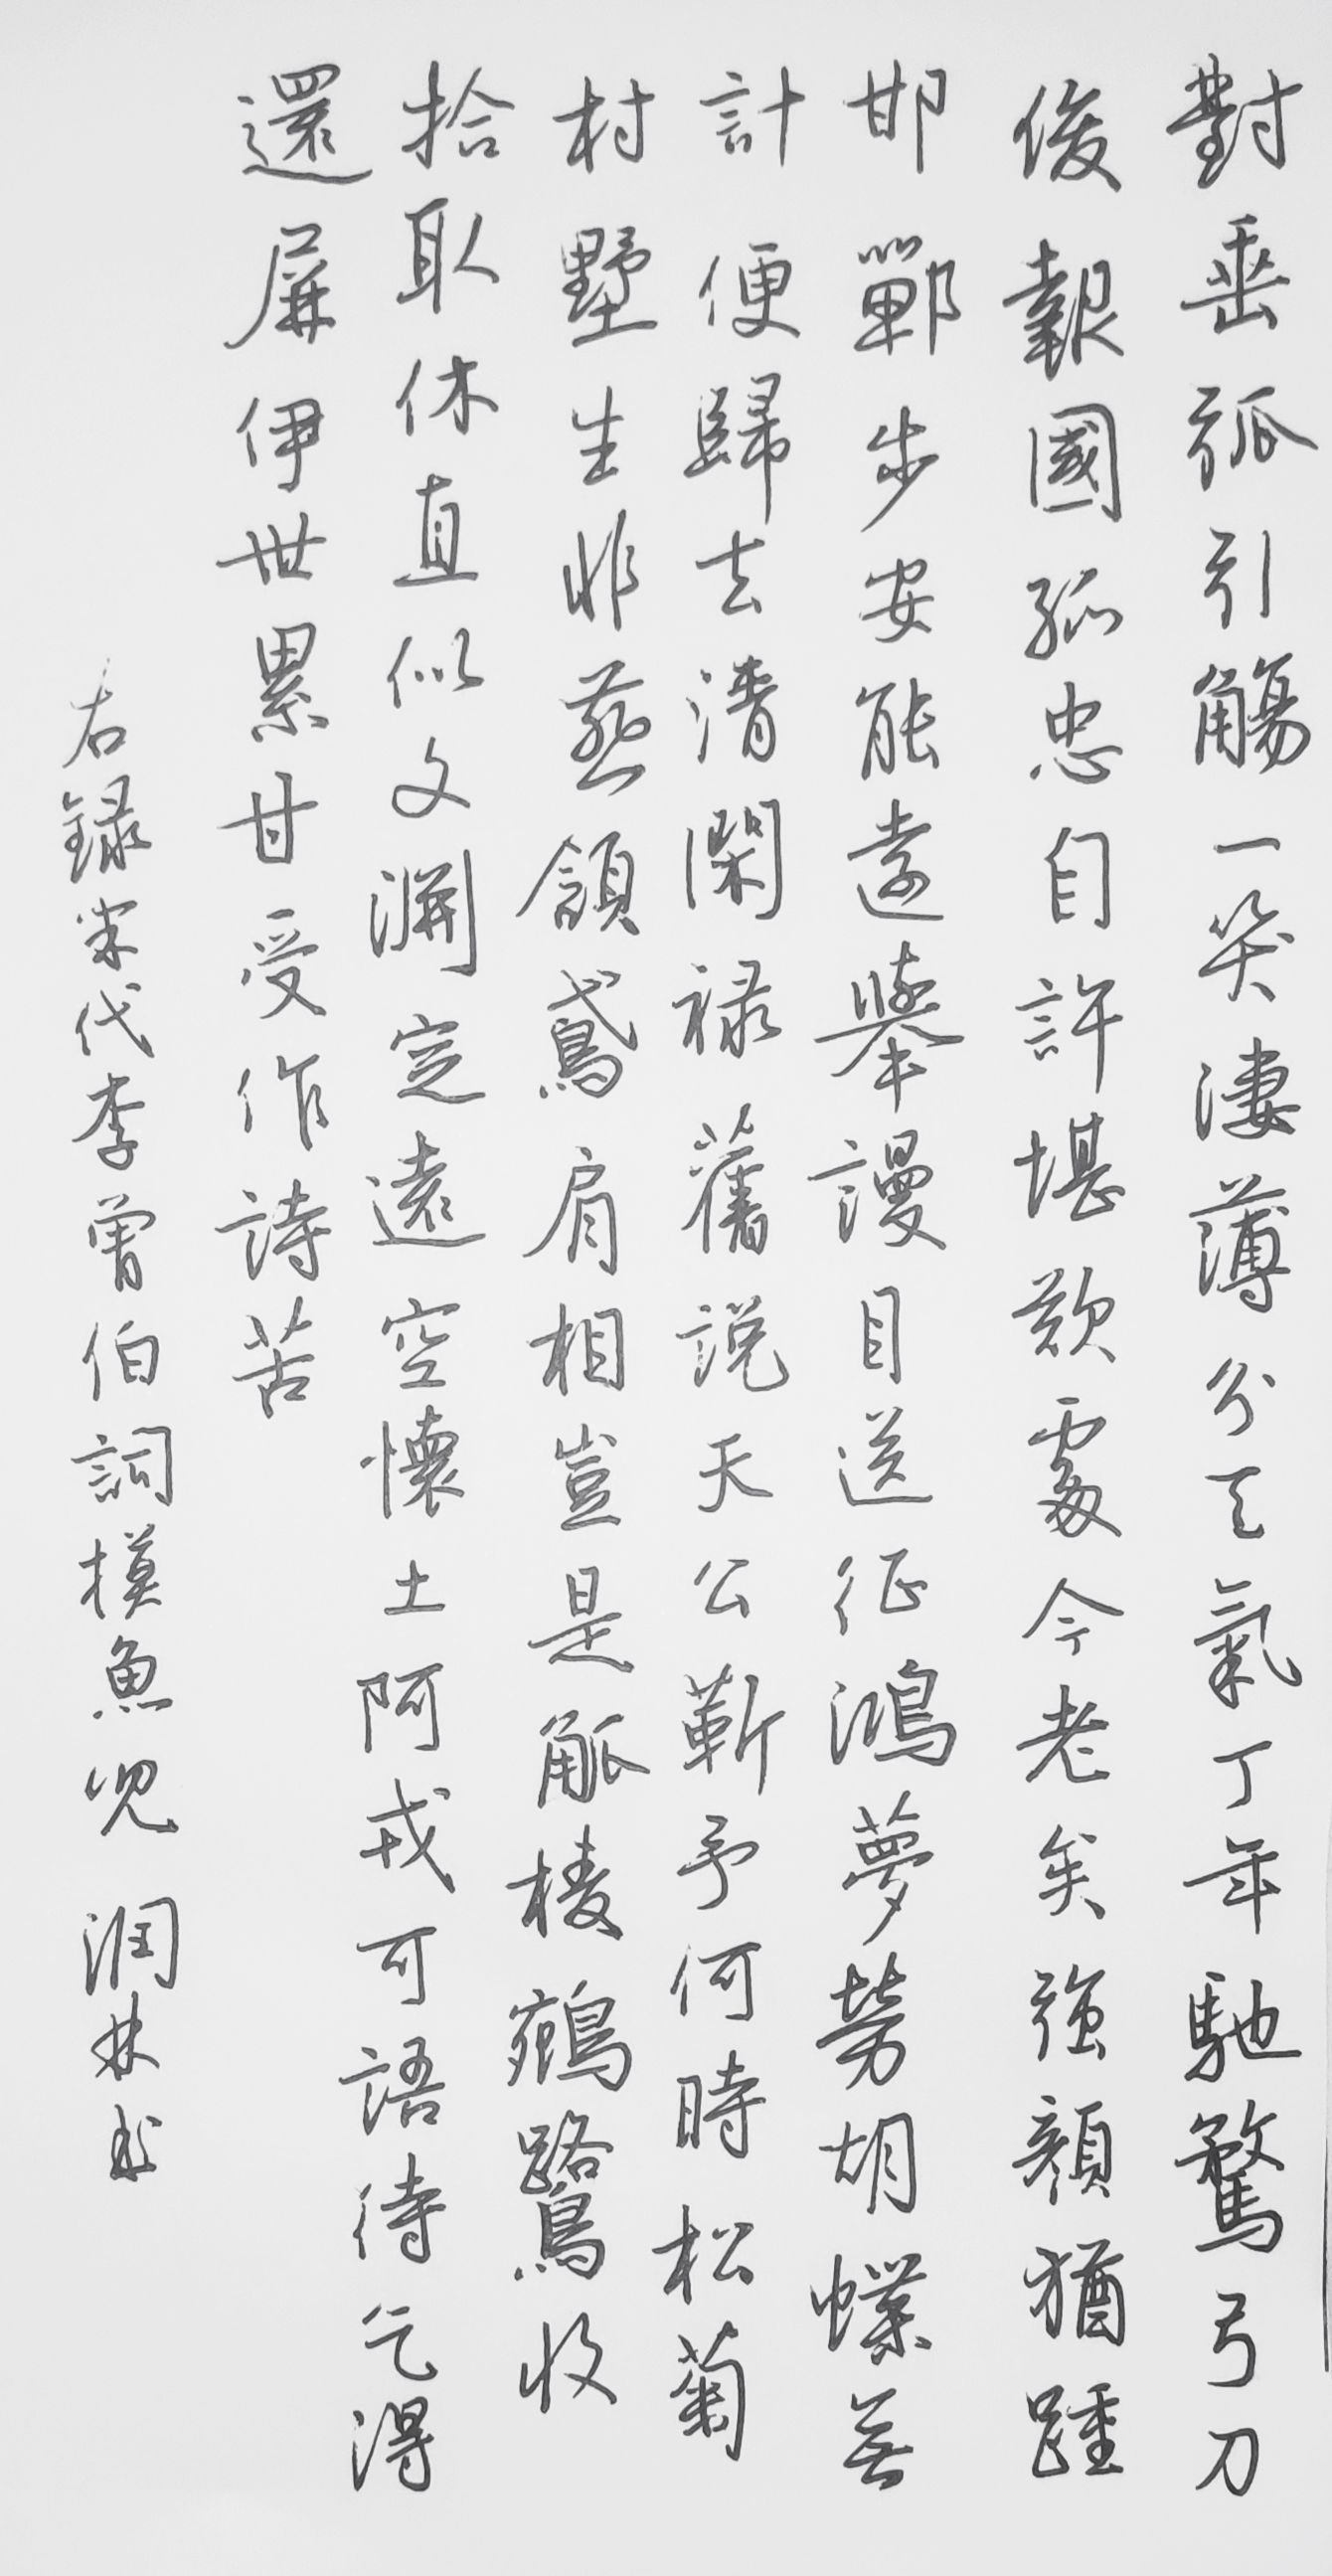 對垂弧引觴一笑淒薄分天氣丁年馳騖弓刀
後報國孤忠自許堪歎處今老矣強顏猶踵
邯鄲步安能遠舉謾目送征鴻夢勞胡蝶無
計便歸去清閑祿舊說天公靳予何時松菊
村墅生非燕頷鳶肩相豈是觚棱鵷鷺收
拾取休直似文淵定遠空懷土阿戎可語待乞得
還屏伊世累甘受作詩苦
右錄宋代李曾伯詞摸魚兒 潤林书